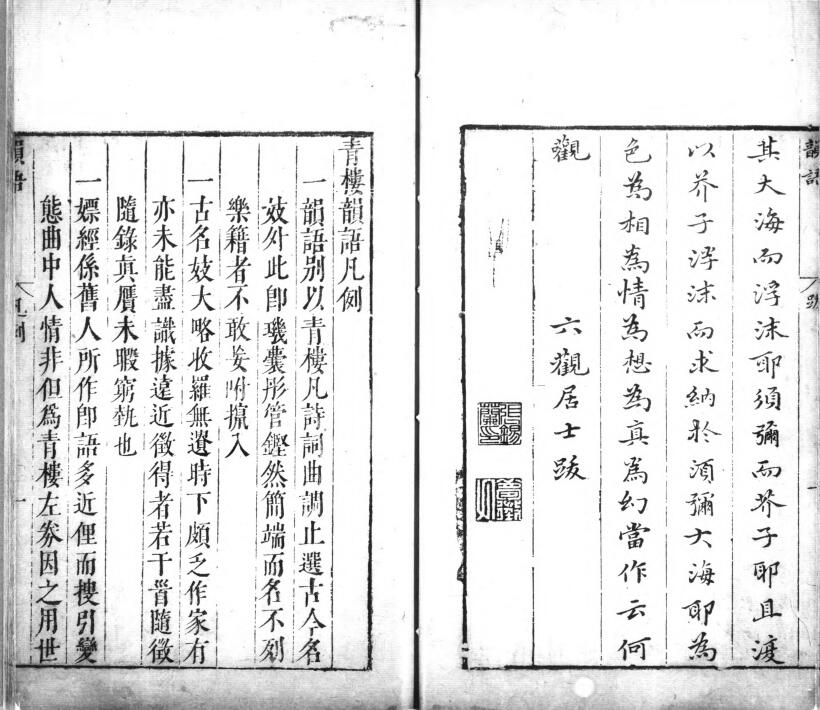 韻語
跋
一
其大海而浮沫耶須彌而芥子耶且渡
以芥子浮沫而求納於須彌大海耶為
色為相為情為想為真為幻當作云何
觀
六觀居士跋
青樓韻語凡例
一韻語別以青樓凡詩詞曲調止選古今名
妓外此即璣囊彤管鏗然簡端而名不列
樂籍者不敢妄咐攛入
一古名妓大略收羅無遺時下頗乏作家有
亦未能盡識據遠近徵得者若干眘隨徵
隨錄真贋未暇窮埶也
一嫖經係舊人所作即語多近俚而搜引變
態曲中人情非但為青樓左券因之用世
韻語
凡例
一